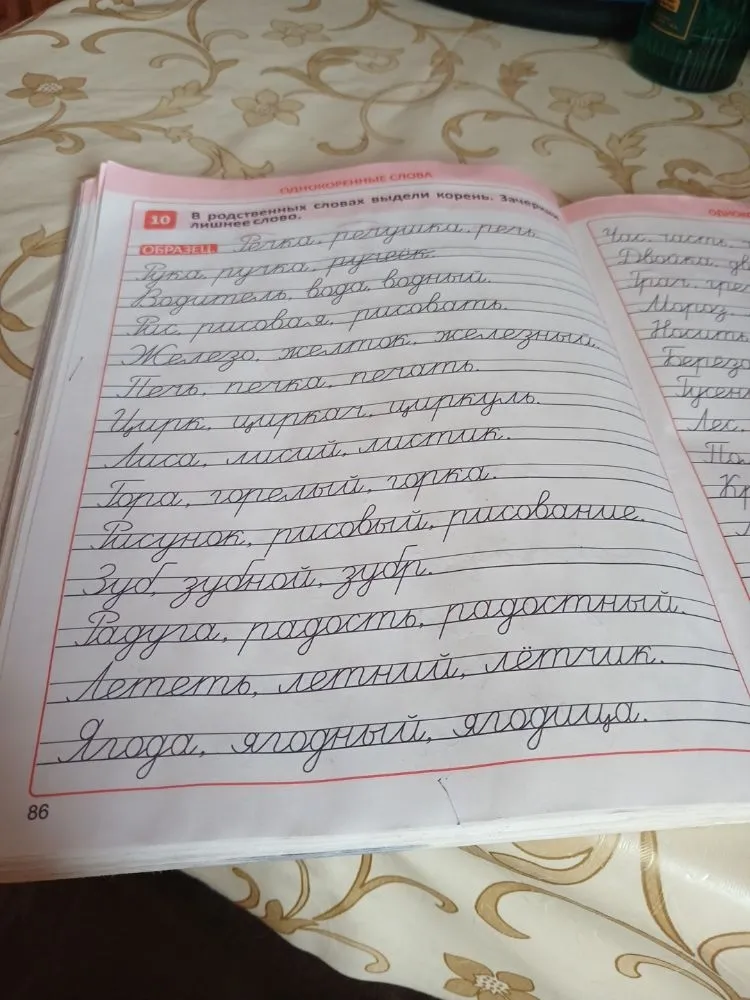 ОДНОКОРЕННЫЕ СЛОВА
10 В родственных словах выдели корень. Зачеркни
лишнее слово.
ОБРАЗЕЦ. Речка, речушка, речь
Рука, ручка, ручеёк.
Водитель, вода, водный.
Рис, рисовая, рисовать.
Железо, желток, железный.
Печь, печка, печать.
Цирк, циркач, циркуль.
Лиса, лисий, листик.
Гора, горелый, горка.
Рисунок, рисовый, рисование.
Зуб, зубной, зубр.
Радуга, радость, радостный.
Лететь, летний, лётчик.
Ягода, ягодный, ягодица.
86
Час, часть,
Двойка,
Грач,
Мороз
Носить